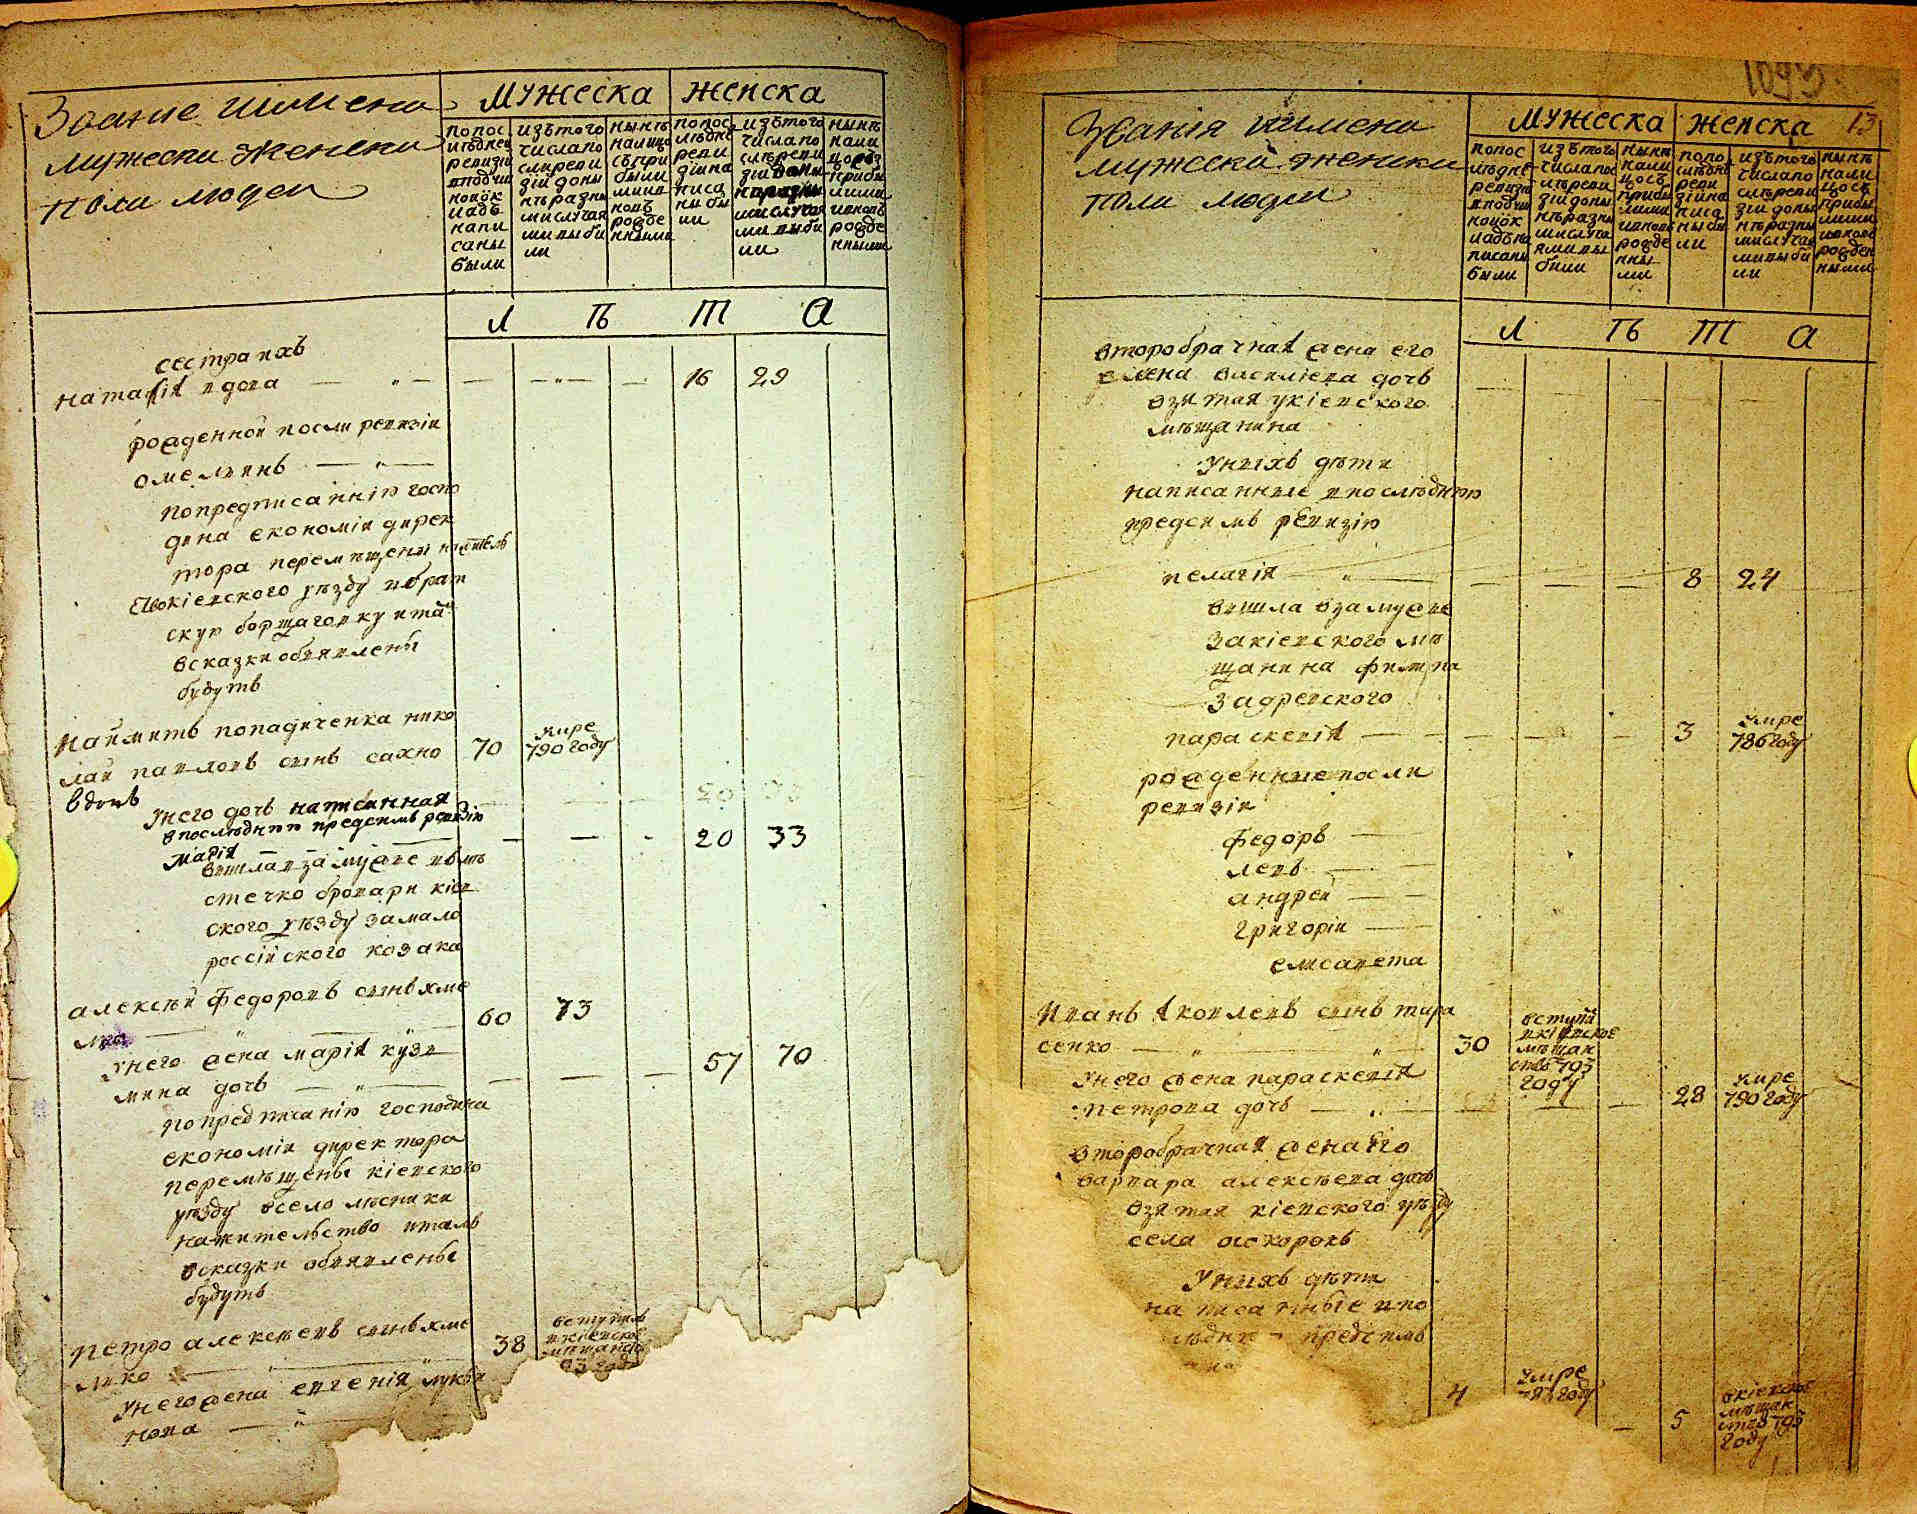 Звание иимена
мужеска женска
пола людеи
мужеска женска
попос лѣднеи ревизии вподуш нойок ладъ напи саны были
изътого числапо слѣреви зіи доны нѣ разны мислучая мивыби ли
нынѣ налицо съпри былими ивновъ рожде нными
попос лѣдне реви зіина писа ны бы ли
изътого числапо слѣреви зіи доны нѣразны мислучая мивыби ли
нынѣ нали цосъ прибы лими ивновъ рожде нными
л ѣ т а
сестра ихъ
наталія вдова — „ — 16 29
рожденной посли ревизіи
омельянъ — „ —
попредписанію госпо
дина економіи дирек
тора перемѣщены нажителъ
ство кіевского уѣзду вбрат
скую борщаговку ита
всказки обявлены
будутъ
наймитъ попадиченка нико
лаи павловъ сынъ сахно 70 умре 790 году
вдовъ
унего дочъ написанная
впослѣднюю предсимъ ревизію
марія — 20 33
вышла взамуже вмѣ
стечко бровари кіев
ского уѣзду замало
россійского козака
алексѣй федоровъ сынъ хме
лко — „ — 60 73
унего жена марія кузв
мина дочъ — „ — 57 70
попредписанію господина
економіи директора
перемѣщены кіевского
уѣзду всело лѣсники
нажителство италъ
всказки обявлены
будутъ
петро алексѣевъ сынъ хме
лко — „ — 38 вступилъ вкіевское мѣщанство 93 году
унего жена евгенія лукъя
нова — „
13
Званія иимена
мужеска женска
пола людеи
мужеска женска
попос лѣднеи ревизіи вподуш нойок ладъ на писаны были
изътого числапос лѣреви зіи доны нѣразны мислуча ямивы били
нынѣ нали цосъ прибы лими ивновъ рожде нны ми
попо слѣдне реви зіина писа ны бы ли
изътого числапо слѣреви зіи доны нѣразны мислучая мивыби ли
нынѣ нали цосъ прибы лими ивновъ рожден ными
л ѣ т а
второбрачная жена его
елена василіева дочъ
взятая укіевского
мѣщанина
унихъ дѣти
написанные впослѣднюю
предсимъ ревизію
пелагія — „ — 8 24
вышла взамуже
закіевского мѣ
щанина филипа
задревского
параскевія — 3 умре 786 году
рожденные посли
ревизіи
федоръ —
левъ —
андреи —
григоріи —
елисавета
иванъ яковлевъ сынъ тара
сенко — „ — „ 30 вступил вкіевское мѣщан ство 793 году
унего жена параскевія
петрова дочъ — „ — 28 умре 790 году
второбрачная жена его
варвара алексѣева дочъ
взятая кіевского уѣзду
села
унихъ дѣти
написанные впо
слѣдню предсимъ
4 умре году
5 вкіевское мѣщан ство 793 году